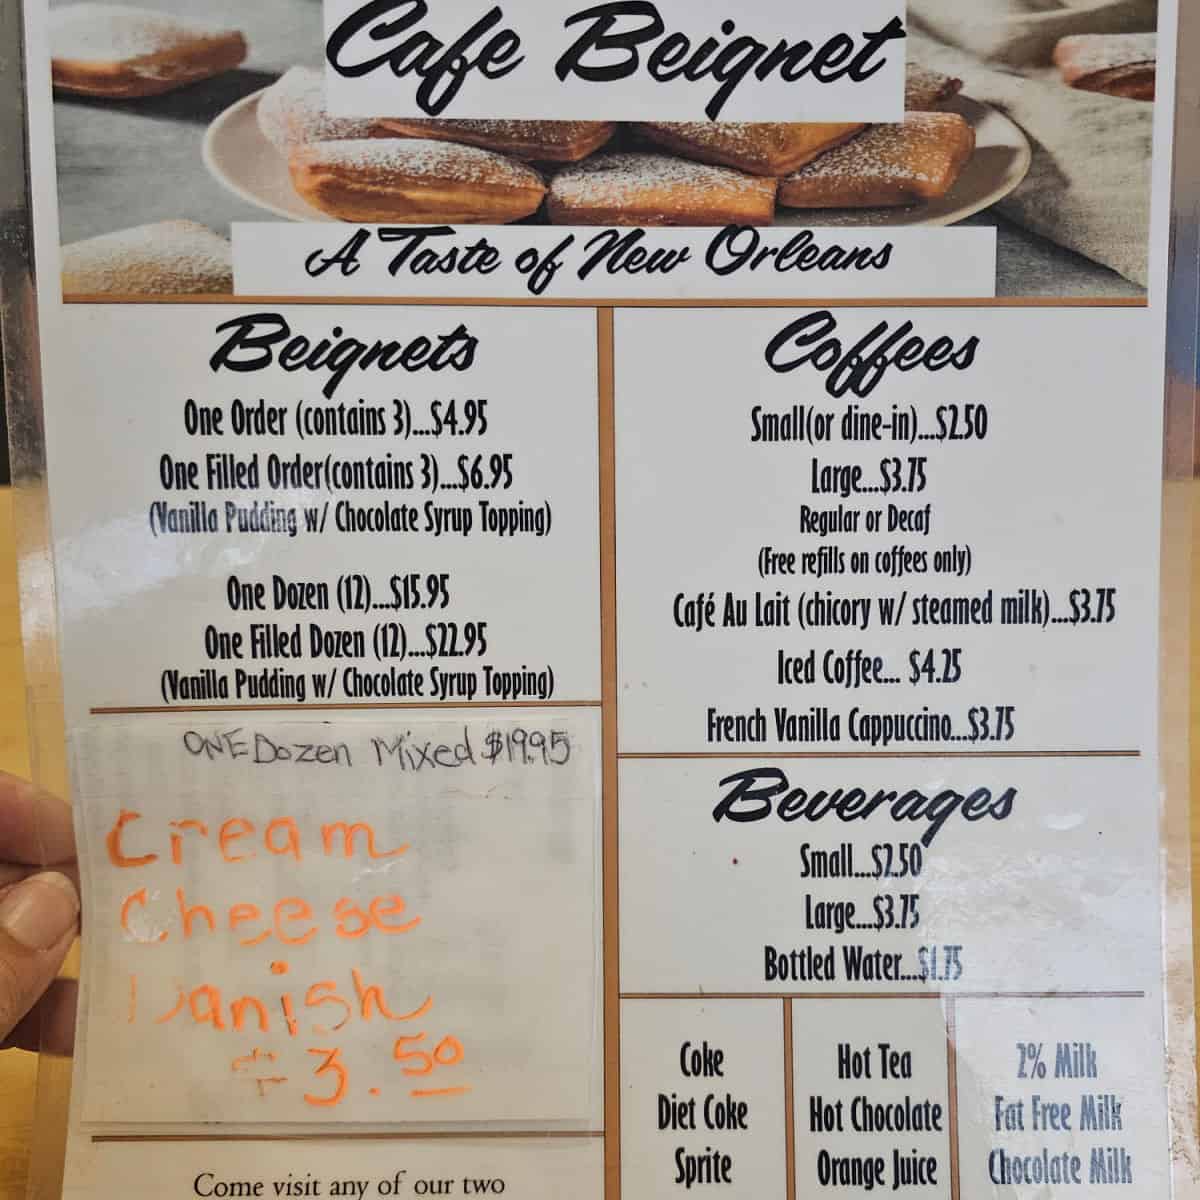 Cafe Beignet
A Taste of New Orleans
Beignets
One Order (contains 3)...$4.95
One Filled Order(contains 3)...$6.95
(Vanilla Pudding w/ Chocolate Syrup Topping)
One Dozen (12)...$15.95
One Filled Dozen (12)...$22.95
(Vanilla Pudding w/ Chocolate Syrup Topping)
ONE Dozen Mixed $19.95
Cream
Cheese
Danish
$3.50
Come visit any of our two
Coffees
Small(or dine-in)...$2.50
Large...$3.75
Regular or Decaf
(Free refills on coffees only)
Café Au Lait (chicory w/ steamed milk)...$3.75
Iced Coffee... $4.25
French Vanilla Cappuccino...$3.75
Beverages
Small...$2.50
Large...$3.75
Bottled Water...$1.75
Coke
Diet Coke
Sprite
Hot Tea
Hot Chocolate
Orange Juice
2% Milk
Fat Free Milk
Chocolate Milk